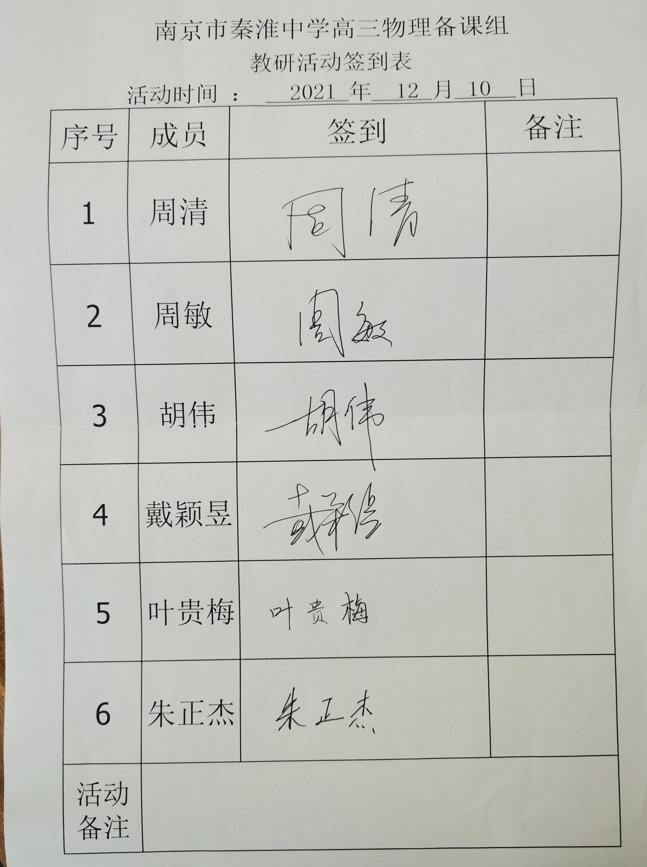 南京市秦淮中学高三物理备课组
教研活动签到表
活动时间 ： 2021 年 12 月 10 日
序号 成员 签到 备注
1 周清 周清
2 周敏 周敏
3 胡伟 胡伟
4 戴颖昱
5 叶贵梅 叶贵梅
6 朱正杰 朱正杰
活动
备注